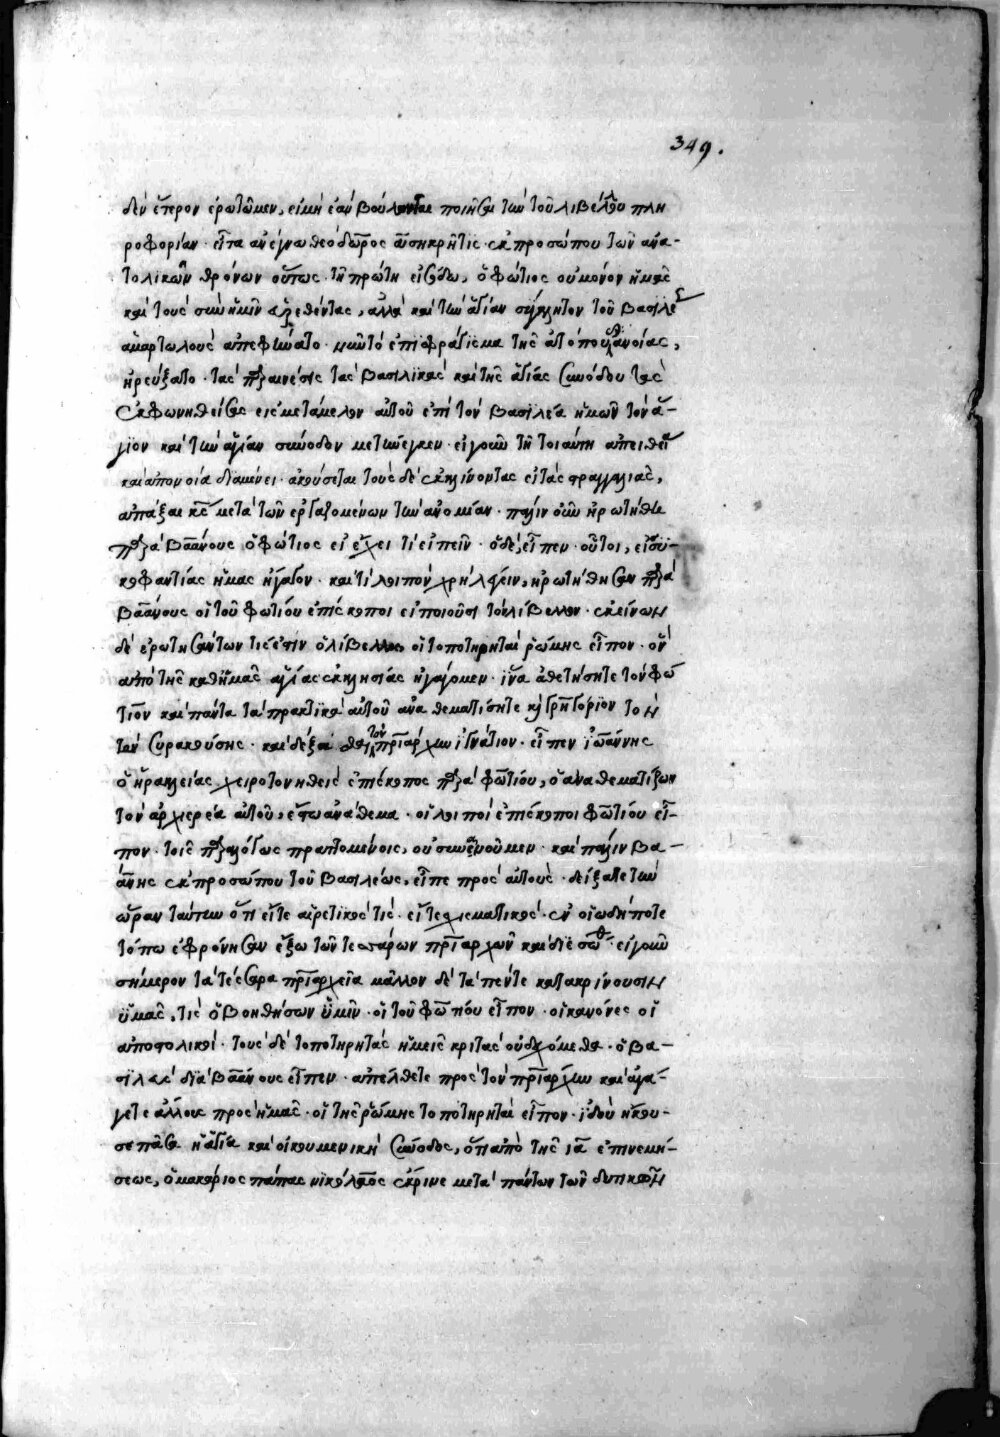 349.
δὲν ἕτερον ἐρωτῶμεν, εἰ μὴ ἐὰν βούλονται ποιῆσαι τὴν τοῦ λιβέλλου πλη
ροφορίαν· εἶτα ἀνέγνω θεόδωρος ἀσηκρῆτις ἐκ προσώπου τῶν ἀνα-
τολικῶν θρόνων οὕτως· τῇ πρώτη εἰσόδω, ὁ φώτιος οὐ μόνον ἡμᾶς
καὶ τοὺς σὺν ἡμῖν εὑρεθέντας, ἀλλὰ καὶ τὴν ἁγίαν σύγκλητον τοῦ βασιλέ
ἁμαρτωλοὺς ἀπεφήνατο· καὶ τὸ ἐπισφράγισμα τῆς αὐτοῦ ἀπονοίας,
ἠρεύξατο· τὰς παραινέσεις τὰς βασιλικὰς καὶ τῆς ἁγίας συνόδου τὰς
ἐκφωνηθείσας εἰς μετάμελον αὐτοῦ ἐπὶ τὸν βασιλέα ἡμῶν τὸν ἅ-
γιον καὶ τὴν ἁγίαν σύνοδον μετήνεγκεν· εἰ γοῦν τῇ τοιαύτη ἀπειθεία
καὶ ἀπονοία διαμένει· ἀκούσεται τοὺς δὲ ἐκκλίνοντας εἰς τὰς στραγγαλιὰς,
ἀπάξει κς μετὰ τῶν ἐργαζομένων τὴν ἀνομίαν· πάλιν οὖν ἠρωτήθη
παρὰ βαάνους ὁ φώτιος εἰ ἔχει τὶ εἰπεῖν· ὁ δὲ, εἶπεν· οὗτοι, εἰς συ-
κοφαντίας ἡμᾶς ἤγαγον· καὶ τί λοιπὸν χρὴ λέγειν, ἠρωτήθησαν παρὰ
βαάνους οἱ τοῦ φωτίου ἐπίσκοποι εἰ ποιοῦσι τὸν λίβελλον· ἐκείνων
δὲ ἐρωτησάντων τίς ἐστιν ὁ λίβελλος, οἱ τοποτηρηταὶ ῥώμης εἶπον· ὃν
ἀπὸ τῆς καθ' ἡμᾶς ἁγίας ἐκκλησίας ἠγάγομεν· ἵνα ἀθετήσητε τὸν φώ
τιον καὶ πάντα τὰ πρακτικὰ αὐτοῦ ἀναθεματίσητε κ γρηγόριον τον
τὸν συρακούσης· καὶ δέξασθαι τὸν πριάρχην ἰγνάτιον· εἶπεν ἰωάννης
ὁ ἡρακλείας χειροτονηθεὶς ἐπίσκοπος παρὰ φωτίου, ὁ ἀναθεματίζων
τὸν ἀρχιερέα αὐτοῦ, ἔστω ἀνάθεμα· οἱ λοιποὶ ἐπίσκοποι φωτίου εἶ-
πον· τοῖς παραλόγως πραττομένοις, οὐ συναινοῦμεν· καὶ πάλιν βα-
άνης ἐκ προσώπου τοῦ βασιλέως, εἶπε πρὸς αὐτοὺς· δείξατε τὴν
ὥραν ταύτην ὅτι εἴτε αἱρετικός τις· εἴτε σχισματικὸς· ἐν οἱωδήποτε
τόπω ἐφρόνησαν ἔξω τῶν τεσσάρων πριαρχῶν καὶ διεσώθ· εἰ γοῦν
σήμερον τὰ τέσσαρα πριαρχεῖα μᾶλλον δὲ τὰ πέντε κατακρίνουσιν
ὑμᾶς, τίς ὁ βοηθήσων ὑμῖν· οἱ τοῦ φωτίου εἶπον· οἱ κανόνες οἱ
ἀποστολικοὶ· τοὺς δὲ τοποτηρητὰς ἡμεῖς κριτὰς οὐ δεχόμεθα· ὁ βα-
σιλεὺς διὰ βαάνους εἶπεν· ἀπέλθετε πρὸς τὸν πριάρχην καὶ ἀγά-
γετε ἄλλους πρὸς ἡμᾶς· οἱ τῆς ῥώμης τοποτηρηταὶ εἶπον· ἰδοὺ ἤκου-
σε πᾶσα ἡ ἁγία καὶ οἰκουμενικὴ σύνοδος, ὅτι ἀπὸ τῆς ια ἐπινεμή-
σεως, ὁ μακάριος πάπας νικόλαος ἔκρινε μετὰ πάντων τῶν δυτικῶν